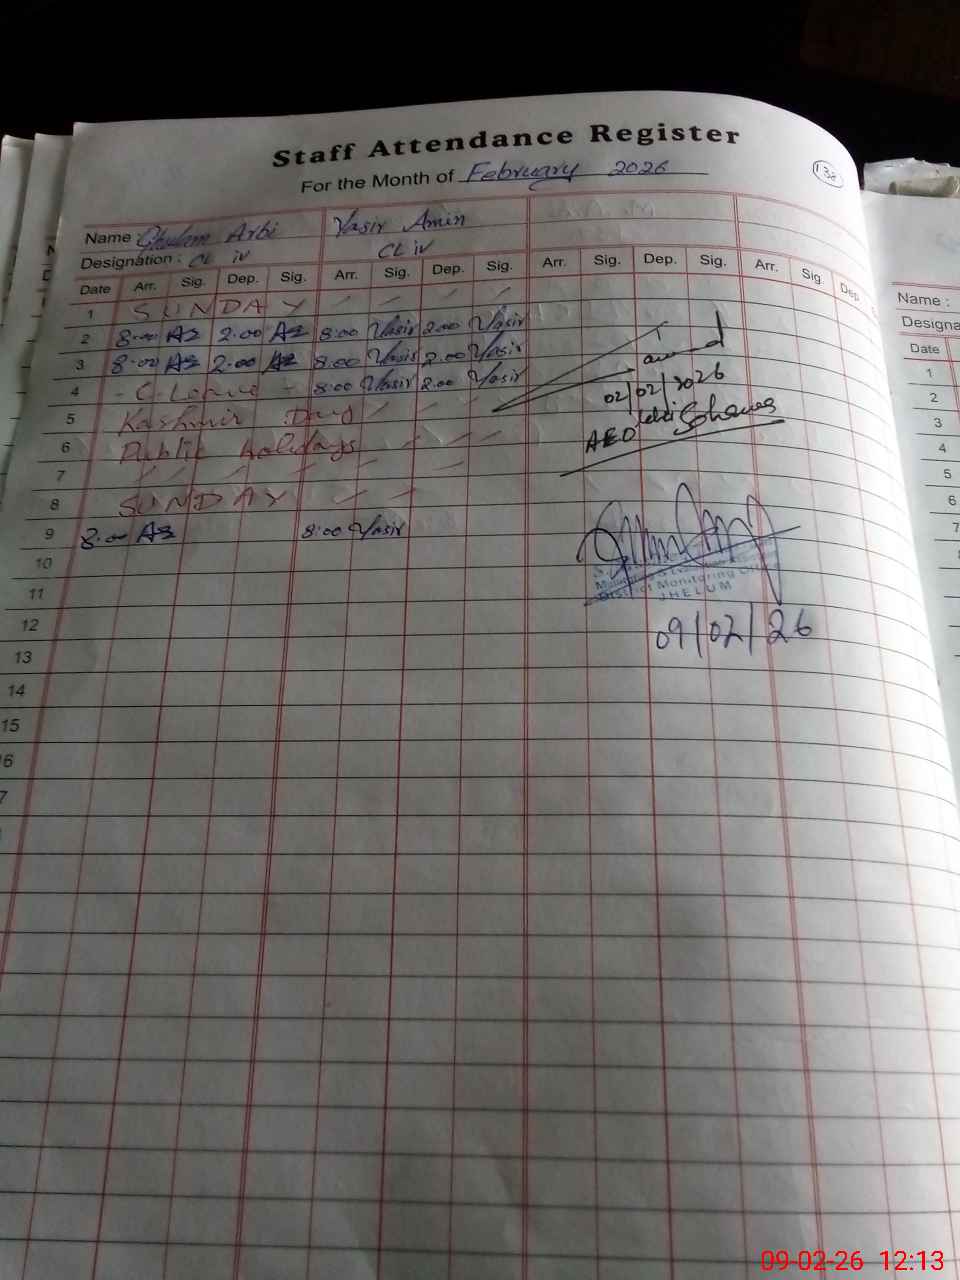 Staff Attendance Register
For the Month of February 2026
138
Name Ghulam Arbi Yasir Amin
Designation : CL iv CL iv
Date Arr. Sig. Dep. Sig. Arr. Sig. Dep. Sig. Arr. Sig. Dep. Sig. Arr. Sig. Dep.
1 SUNDAY
2 8:00 AZ 2:00 AZ 8:00 Yasir 2:00 Yasir
3 8:00 AZ 2:00 AZ 8:00 Yasir 2:00 Yasir
4 - C-Leave - 8:00 Yasir 2:00 Yasir
5 Kashmir Day
6 Public holidays
7
8 SUNDAY
9 8:00 AZ 8:00 Yasir
10
11
12
13
14
15
6
7
02/02/2026
AEO Sohawa
District Monitoring Office
JHELUM
09/02/26
Name :
Designa
Date
1
2
3
4
5
6
7
09-02-26 12:13